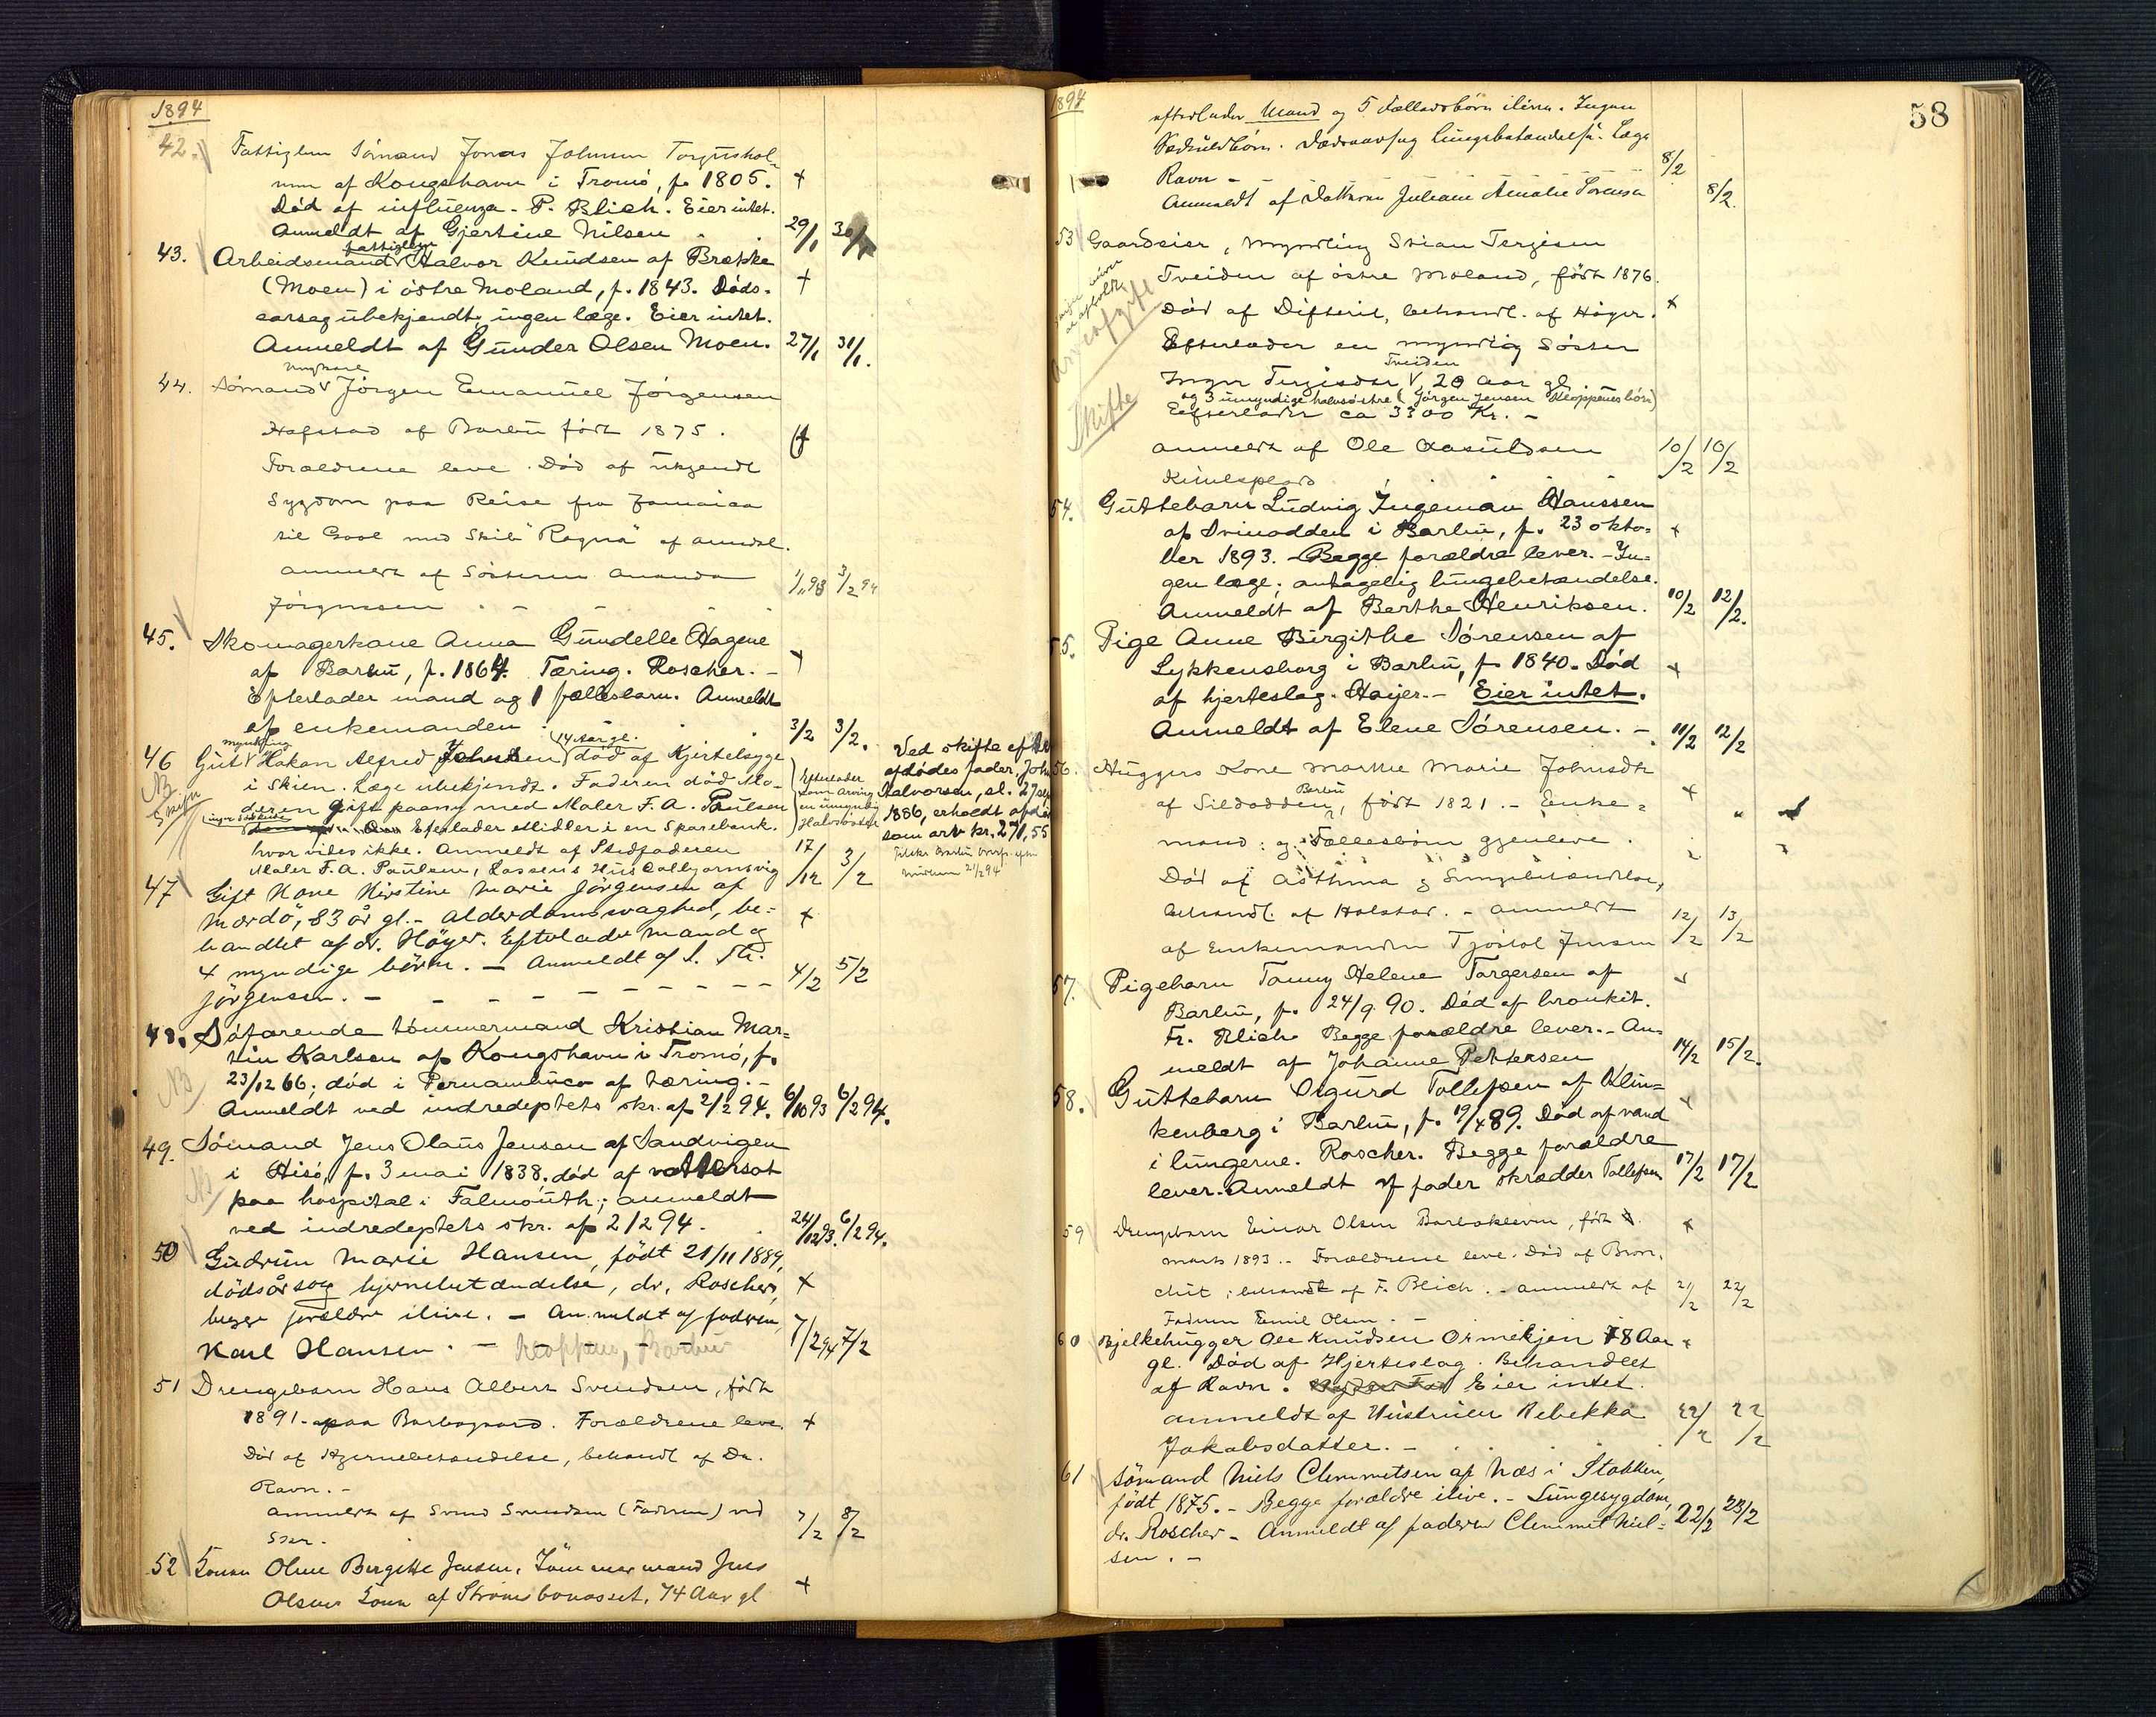 1894
42. Fattiglem Sømand Jonas Johnsen Torjushol-
men af Kongshavn i Tromø, f. 1805. +
Død af influenza. P. Blich. Eier intet.
Anmeldt af Gjertine Nilsen 29/1 30/1
43. Arbeidsmand fattiglem Halvor Knudsen af Brække
(Moen) i østre Moland, f. 1843. Døds- +
aarsag ubekjendt, ingen læge. Eier intet.
Anmeldt af Gunder Olsen Moen. 27/1 31/1.
44. Sømand Ungkarl Jørgen Emanuel Jørgensen
Hafstad af Barbu født 1875.
Forældrene leve. Død af ukjendt
Sygdom paa Reise fra Jamaica
til Goole med Skib "Ragna" af Arendal.
Anmeldt af Søsteren Amanda 1/11 93 3/2 94
Jørgensen . - - - -
45. Skomagerkone Anna Gundelle Hagene
af Barbu, f. 1864. Tæring. Roscher. - +
Efterlader mand og 1 fællesbarn. Anmeldt
af enkemanden . . . 3/2 3/2.
46 Gut myndling Hakon Alfred Johnsen (14 Aar gl. død af Kjertelsyge
NB Skifte
i Skien. Læge ubekjendt. Faderen død Mo-
deren gift paany med Maler F. A. Paulsen
ingen Søskende Efterlader Midler i en Sparebank.
hvor vides ikke. Anmeldt af Stedfaderen
Maler F. A. Paulsen, Lassens Hus Colbjørnsvig 17/12 3/2
Efterlader
som arving
en umyndig
Halvsøster
Ved skifte efter
afdødes fader, John
Halvorsen, sl. 27
1886, erholdt afdøde
som arv kr. 271,55
47 Gift Kone Kirstine Marie Jørgensen af
Mærdø, 83 år gl. - Alderdomssvaghed, be- +
handlet af dr. Høyer. Efterlader mand og
4 myndige børn. - Anmeldt af S. Th.
Jørgensen. - - - - - - - - - 4/2 5/2
48. Søfarende tømmermand Kristian Mar-
tin Karlsen af Kongshavn i Tromø, f.
NB 23/12 66; død i Pernambuco af tæring. -
Anmeldt ved indredeptets skr. af 2/2 94. 6/10 93 6/2 94.
49. Sømand Jens Olaus Jensen af Sandvigen
i Hisø, f. 3 mai 1838, død af vattersot
NB paa hospital i Falmouth; anmeldt
ved indredeptets skr. af 2/2 94. 24/12 93. 6/2 94.
50 Gudrun Marie Hansen, født 21/11 1889,
dødsårsag hjernebetændelse, dr. Roscher, +
begge forældre ilive. - Anmeldt af faderen,
Karl Hansen. - Kloppene, Barbu 7/2 94 7/2
51 Drengebarn Hans Albert Svendsen, født
1891 - paa Barbogaard. Forældrene leve. +
Død af Hjernebetændelse, behandl. af Dr.
Ravn. -
Anmeldt af Svend Svendsen (Faderen) ved
Skr. 7/2 8/2
52 Konen Oline Birgitte Jensen, Tømmermand Jens
Olsens Kone af Strømsbonesset, 74 Aar gl +
1894 58
efterlader Mand og 5 Fællesbørn ilive. Ingen
Særkuldbørn. Dødsaarsag Lungebetændelse. Læge
Ravn - - 8/2
Anmeldt af Datteren Juliane Amalie Sørensen 8/2.
53 Gaardeier, myndling Stian Terjesen
Tveiden af østre Moland, født 1876.
Død af Difterit, behandl. af Høyer. +
Efterlader en myndig Søster
Inger Terjesdtr Tveiden, 20 Aar gl.
og 3 umyndige halvsøstre (Jørgen Jensen Kloppenes børn)
Efterlader ca 3300 Kr. -
Anmeldt af Ole Aasuldsen 10/2 10/2
Arveafgift
Skifte
54. Guttebarn Ludvig Ingeman Hanssen
af Svinodden i Barbu, f. 23 okto- +
ber 1893. - Begge forældre lever. - In-
gen læge; antagelig lungebetændelse.
Anmeldt af Berthe Henriksen. 10/2 12/2.
55. Pige Anne Birgithe Sørensen af
Lykkensborg i Barbu, f. 1840. Død +
af hjerteslag. Høijer. - Eier intet.
Anmeldt af Elene Sørensen. - 11/2 12/2
56. Huggers Kone Marthe Marie Johnsdtr
af Sildodden, Barbu født 1821. - Enke- +
mand og Fællesbørn gjenleve.
Død af Asthma & Lungebetændelse,
behandl. af Holstad. - Anmeldt
af Enkemanden Tjøstol Jensen 12/2 13/2
57. Pigebarn Fanny Helene Torgersen af
Barbu, f. 24/9 90. Død af bronkit.
Fr. Blich. Begge forældre lever. - An-
meldt af Johanne Pettersen 14/2 15/2.
58. Guttebarn Sigurd Tollefsen af Klin-
kenberg i Barbu, f. 19/4 89. Død af vand
i lungerne. Roscher. Begge forældre
lever. Anmeldt af fader skrædder Tollefsen 17/2 17/2
59 Drengebarn Einar Olsen Barbokleven, født
marts 1893. - Forældrene leve. Død af Bron-
chit; behandlt af F. Blich. - Anmeldt af 21/2 22/2
Faderen Emil Olsen. -
60 Bjelkehugger Ole Knudsen Ormekjen 78 Aar
gl. Død af Hjerteslag. Behandlet
af Ravn. Eier intet.
Anmeldt af Hustruen Rebekka 22/2 22/2
Jakobsdatter. -
61 Sømand Niels Clemmetsen af Næs i Stokken,
født 1875. - Begge forældre ilive. - Lungesygdom,
dr. Roscher - Anmeldt af faderen Clemmet Niel- 22/2 23/2
sen. -